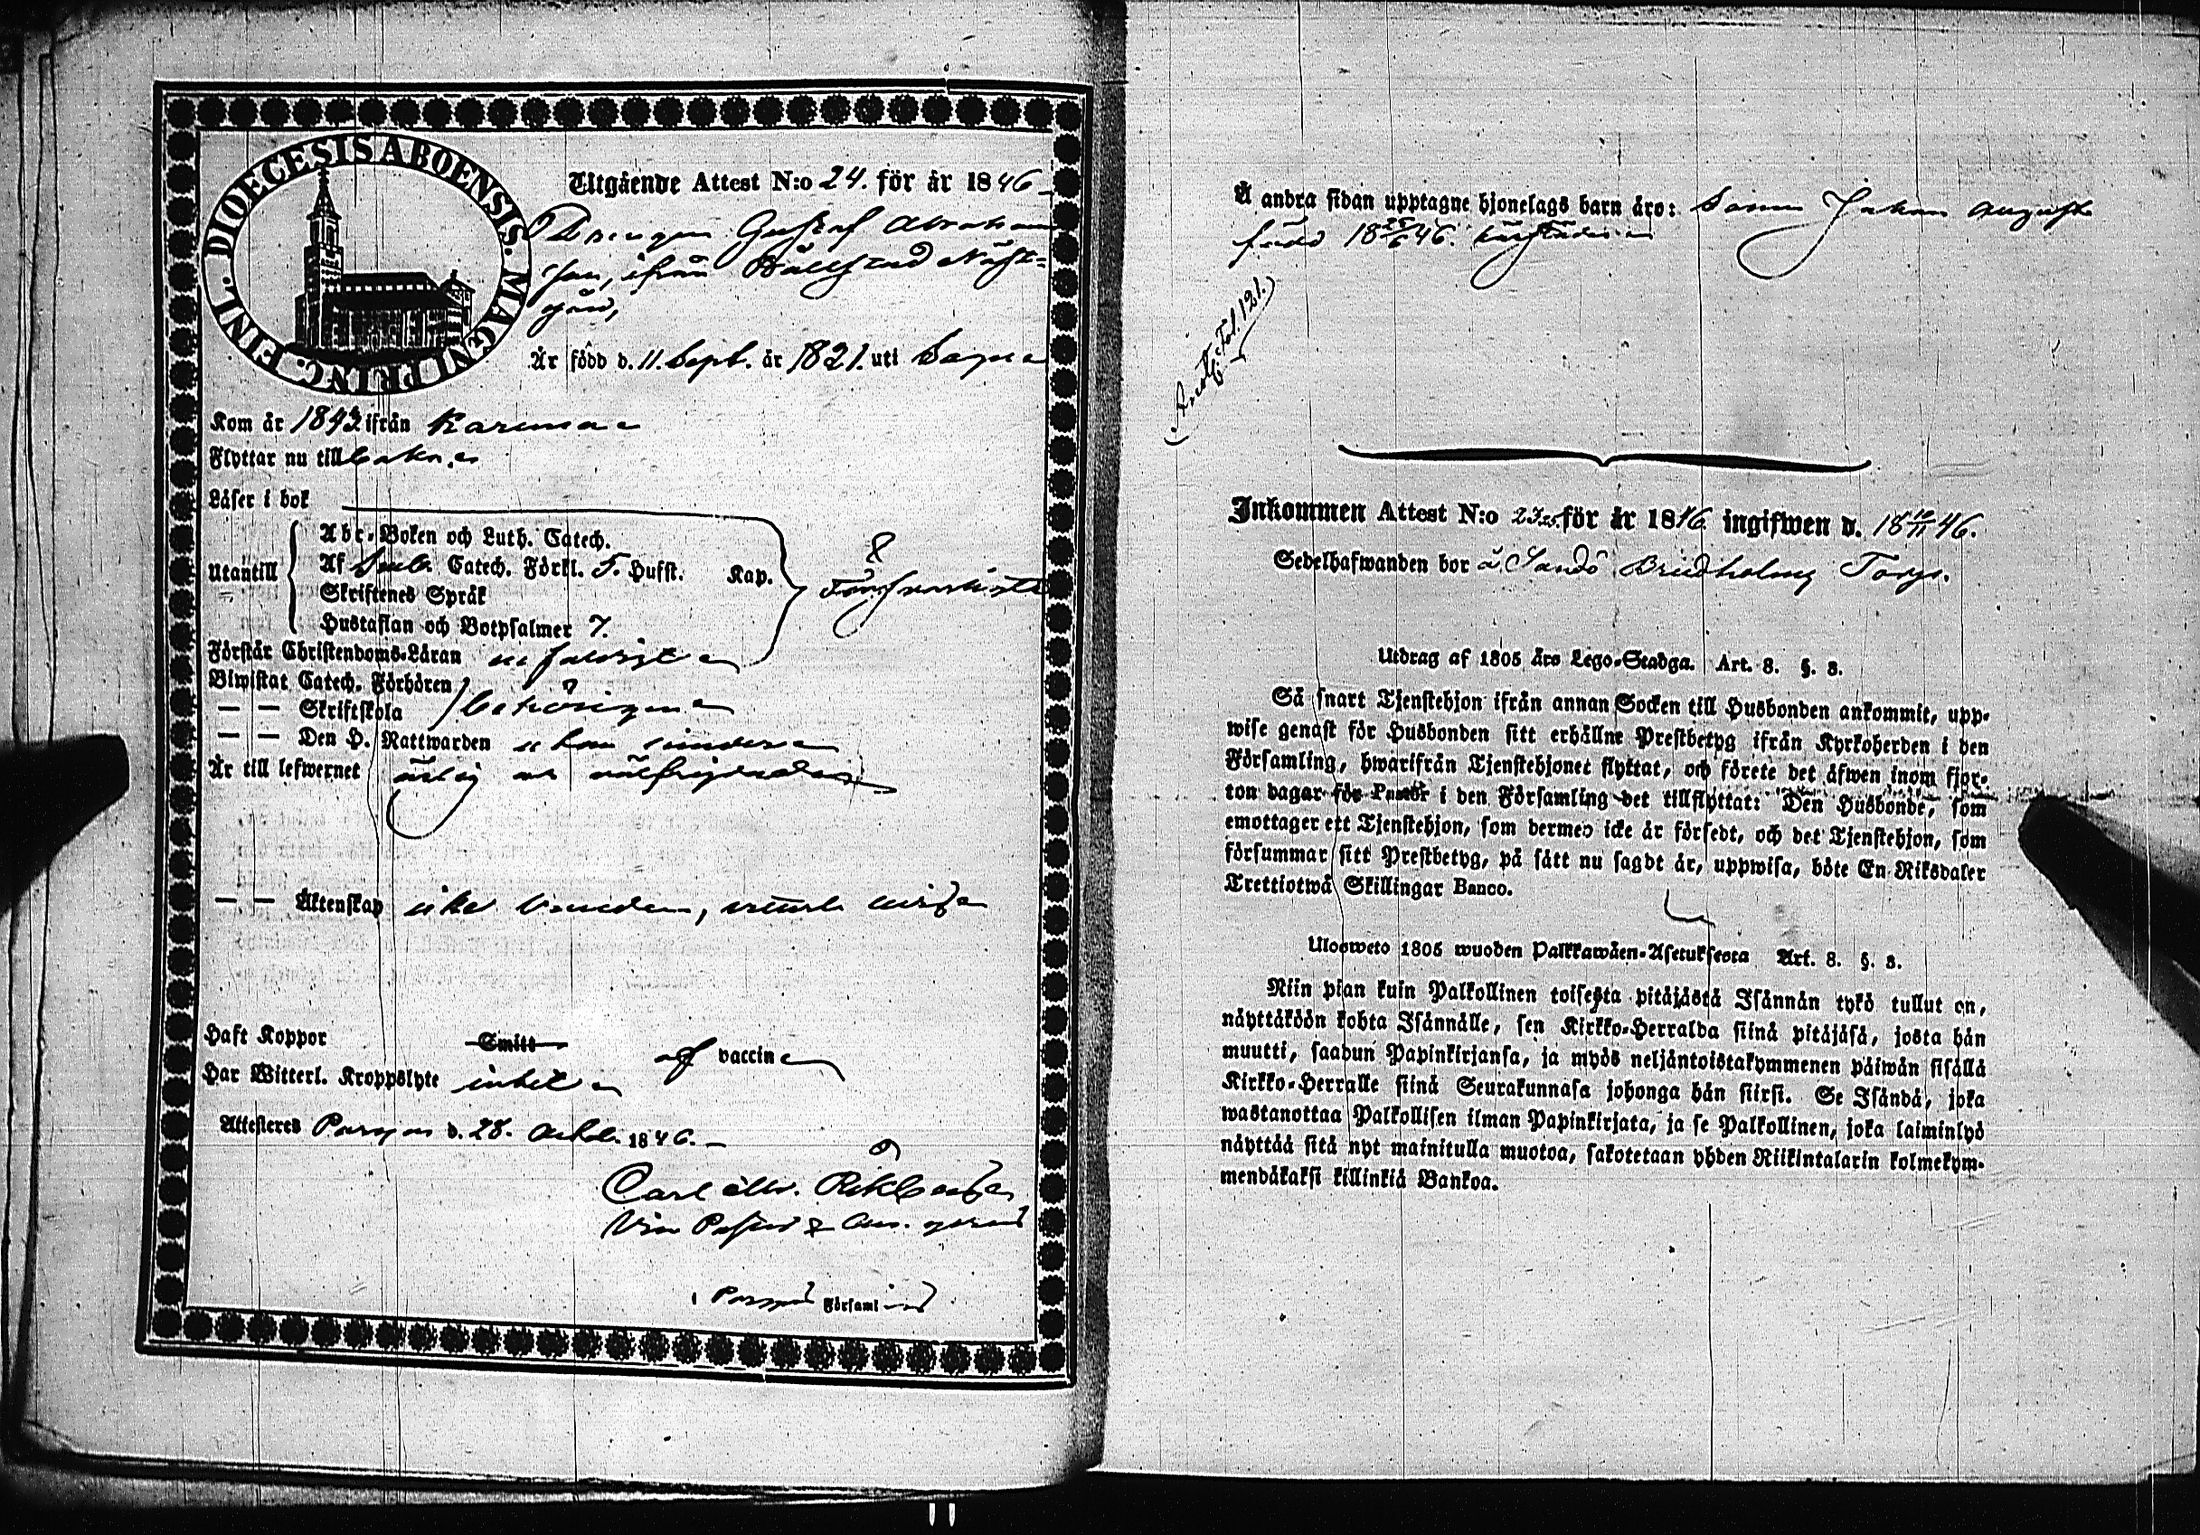 DIOECESIS ABOENSIS. MAGNI PRINC. FINL.
Utgående Attest N:o 24. för år 1846
Drengen Gustaf Abraham
son, ifrån
gård,
Är född d. 11. Sept. år 1821. uti Sagu
Kom år 1843 ifrån Karuna
Flyttar nu till
Läser i bok
Utantill
Abc-Boken och Luth. Catech.
Af Sveb. Catech. Förkl. T. Husst. Kap. 8
Skriftenes Språk
Hustaflan och Botpsalmer 7.
Förstår Christendoms-Läran
Biwistat Catech. Förhören
— — Skriftskola behörigen
— — Den H. Nattwarden
Är till lefwernet ärlig och
— — Äktenskap icke
Haft Koppor Smitt af vaccin
Har Witterl. Kroppslyte intet
Attesteres Pargas d. 28. Octob. 1846.
Carl
Vice Pastor
i Pargas Församl
Å andra sidan upptagne hjonelags barn äro: Sonen Johan August
född 18 25/6 46.
Fol. 121.
Inkommen Attest N:o för år 1846 ingifwen d. 18 10/11 46.
Sedelhafwanden bor å Sandö Bredholms Torp.
Utdrag af 1805 års Lego-Stadga. Art. 8. §. 3.
Så snart Tjenstehjon ifrån annan Socken till Husbonden ankommit, upp-
wise genast för Husbonden sitt erhållne Prestbetyg ifrån Kyrkoherden i den
Församling, hwarifrån Tjenstehjonet flyttat, och förete det äfwen inom fjor-
ton dagar för Pastor i den Församling det tillflyttat: Den Husbonde, som
emottager ett Tjenstehjon, som dermed icke är försedt, och det Tjenstehjon, som
försummar sitt Prestbetyg, på sätt nu sagdt är, uppwisa, böte En Riksdaler
Trettiotwå Skillingar Banco.
Ulosweto 1805 wuoden Palkkawäen-Asetuksesta Art. 8. §. 3.
Niin pian kuin Palkollinen toisesta pitäjästä Isännän tykö tullut on,
näyttäköön kohta Isännälle, sen Kirkko-Herralda siinä pitäjäsä, josta hän
muutti, saadun Papinkirjansa, ja myös neljäntoistakymmenen päiwän sisällä
Kirkko-Herralle siinä Seurakunnasa johonga hän siirsi. Se Isändä, joka
wastanottaa Palkollisen ilman Papinkirjata, ja se Palkollinen, joka laiminlyö
näyttää sitä nyt mainitulla muotoa, sakotetaan yhden Riikintalarin kolmekym-
mendäkaksi killinkiä Bankoa.